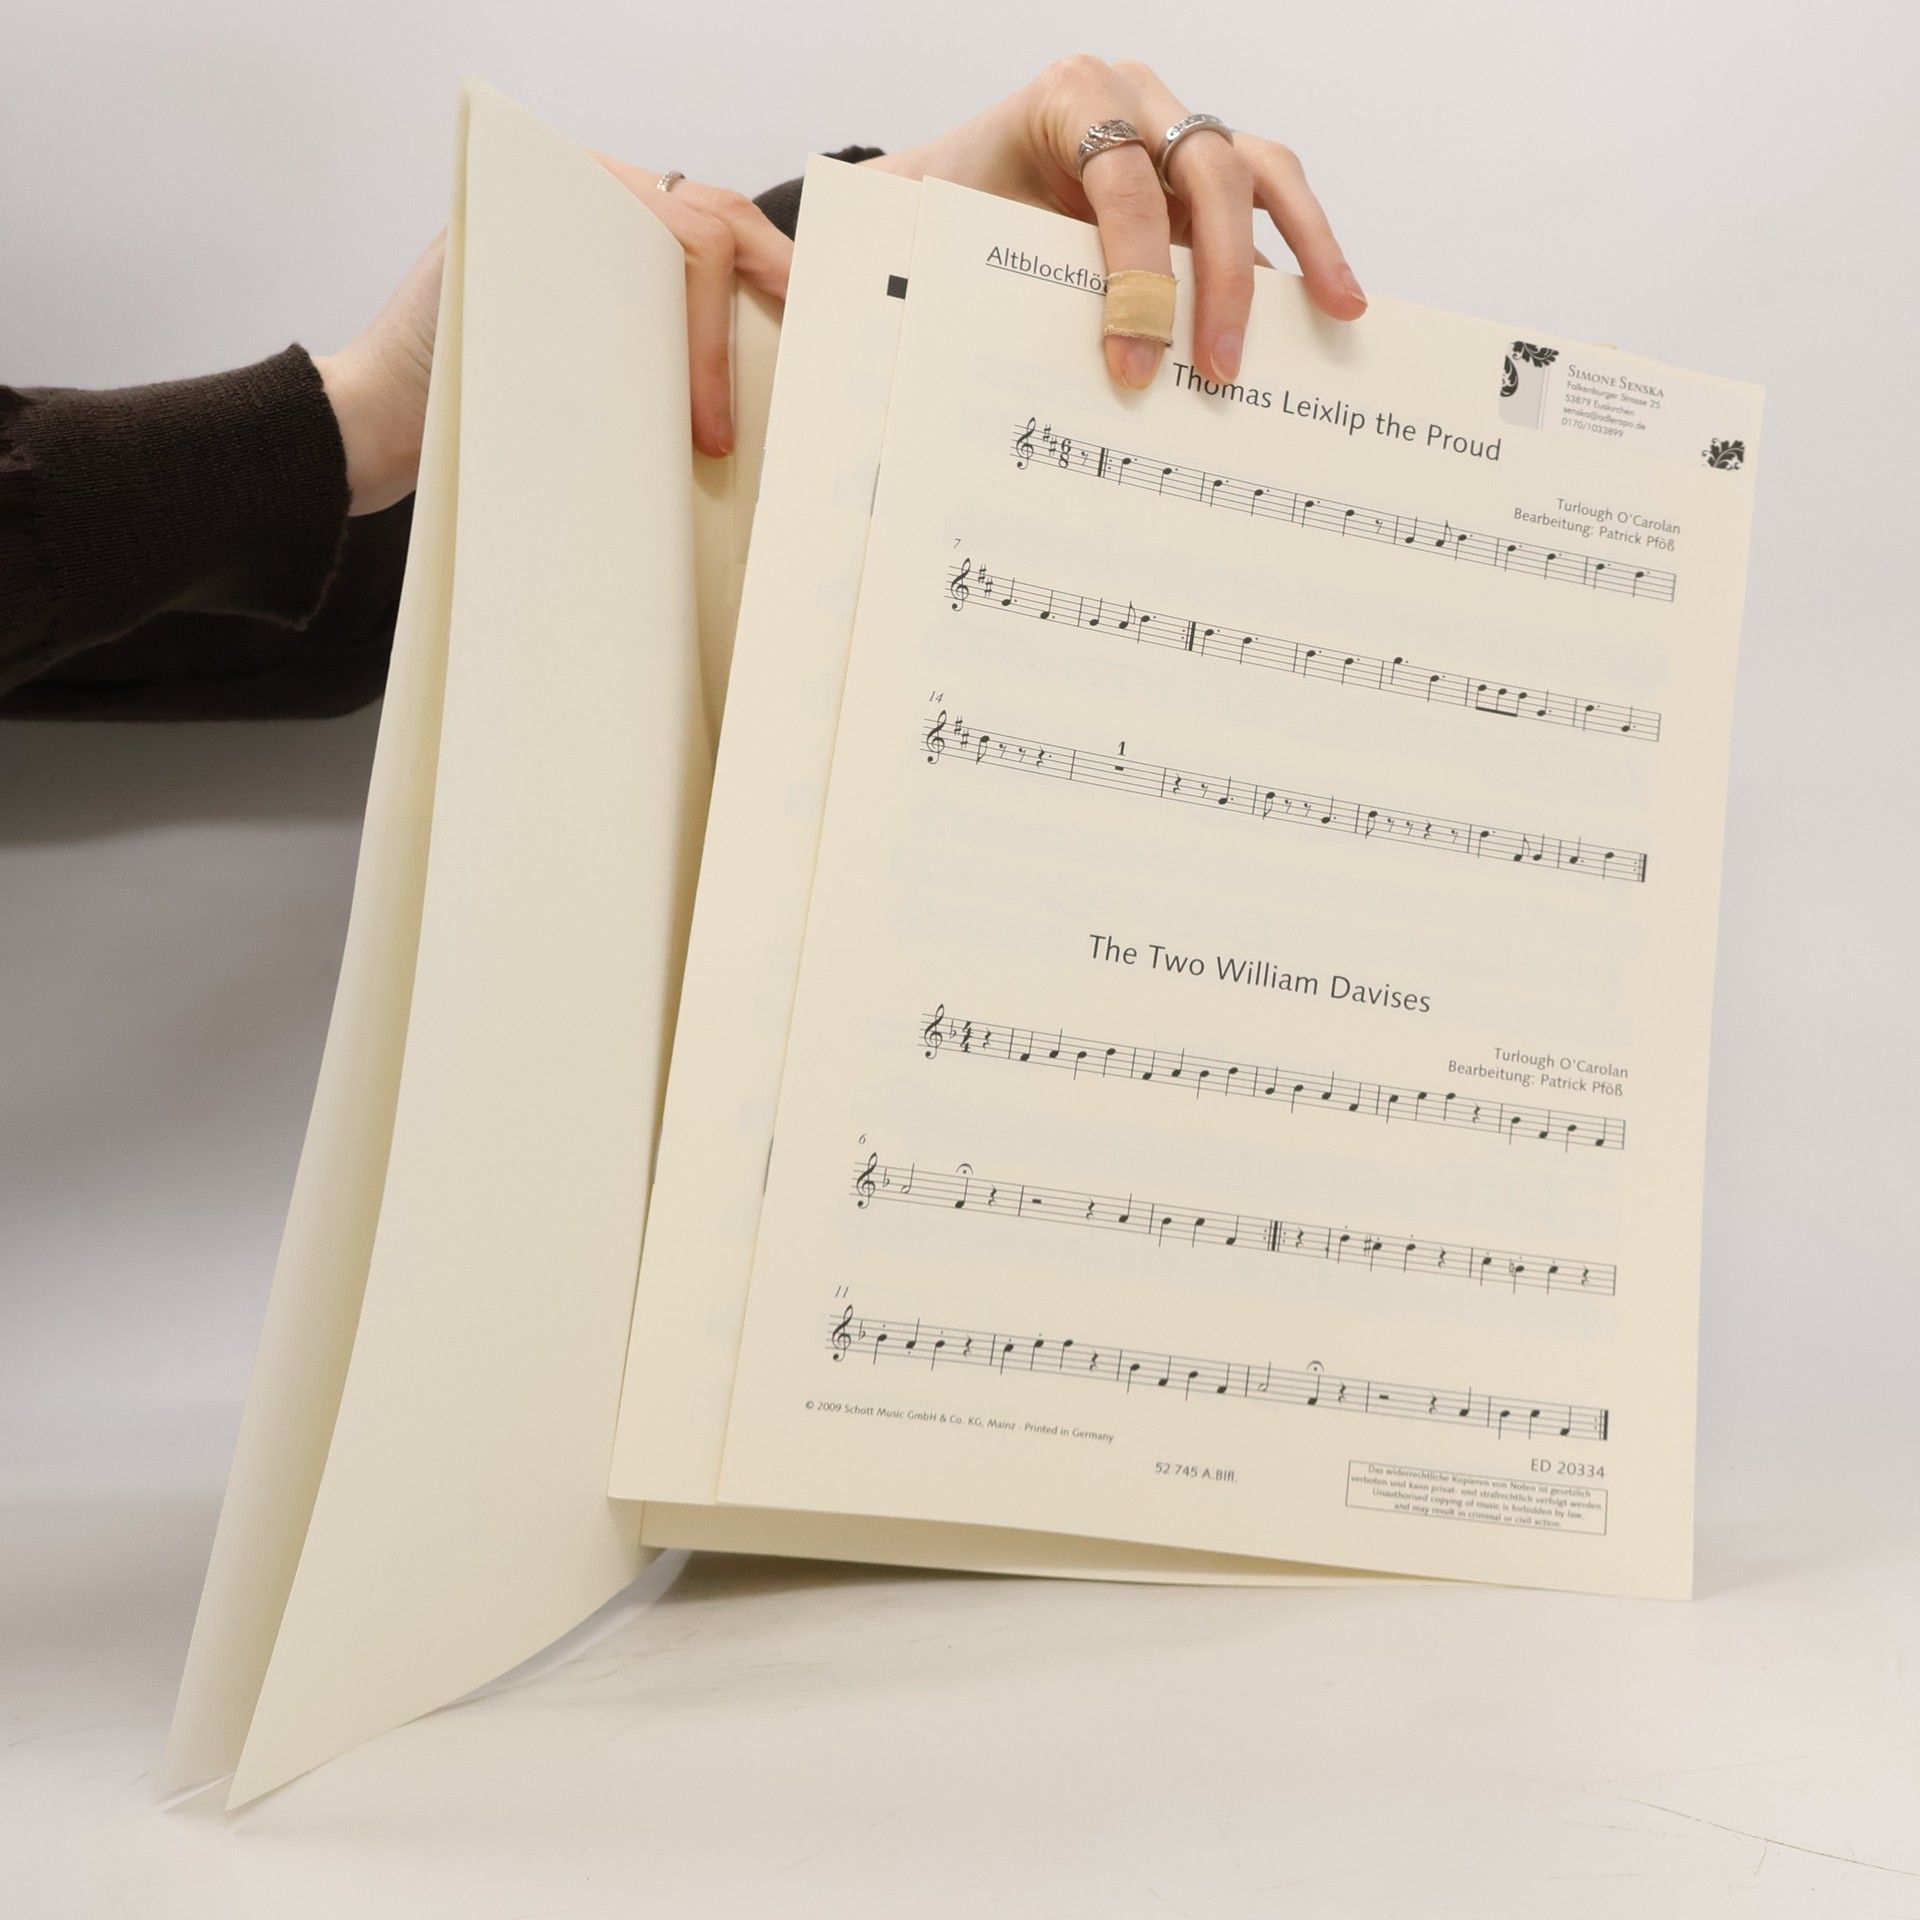 Altblockflö
Thomas Leixlip the Proud
SIMONE SENSKA
Falkenburger Strasse 25
53879 Euskirchen
senska@adlerapo.de
0170/1033899
Turlough O'Carolan
Bearbeitung: Patrick Pföß
6
8
7
14
1
The Two William Davises
Turlough O'Carolan
Bearbeitung: Patrick Pföß
4
4
6
11
© 2009 Schott Music GmbH & Co. KG, Mainz · Printed in Germany
52 745 A.Blfl.
ED 20334
Das widerrechtliche Kopieren von Noten ist gesetzlich
verboten und kann privat- und strafrechtlich verfolgt werden.
Unauthorised copying of music is forbidden by law,
and may result in criminal or civil action.